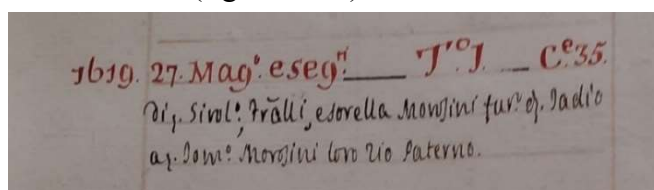 1619. 27. Magº. e segⁿᵗⁱ ___ Tº. I. __ Cᵉ. 35.
Girolº: Frãlli, e sorella Morosini furº q.
aq. Domº: Morosini loro Zio Paterno.